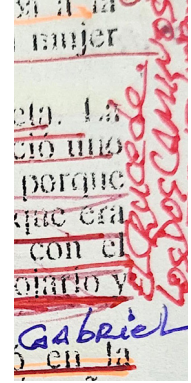 mujer
La
ció uno
porque
que era
con el
y
GAbRiEL
en la
El cruce de
los dos caminos